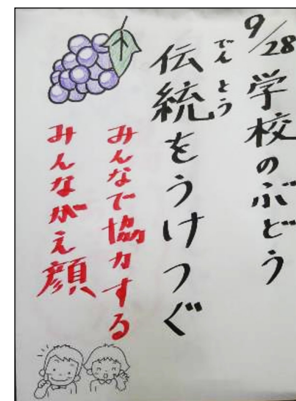 9/28 学校のぶどう
でんとう
伝統をうけつぐ
みんなで協力する
みんながえ顔